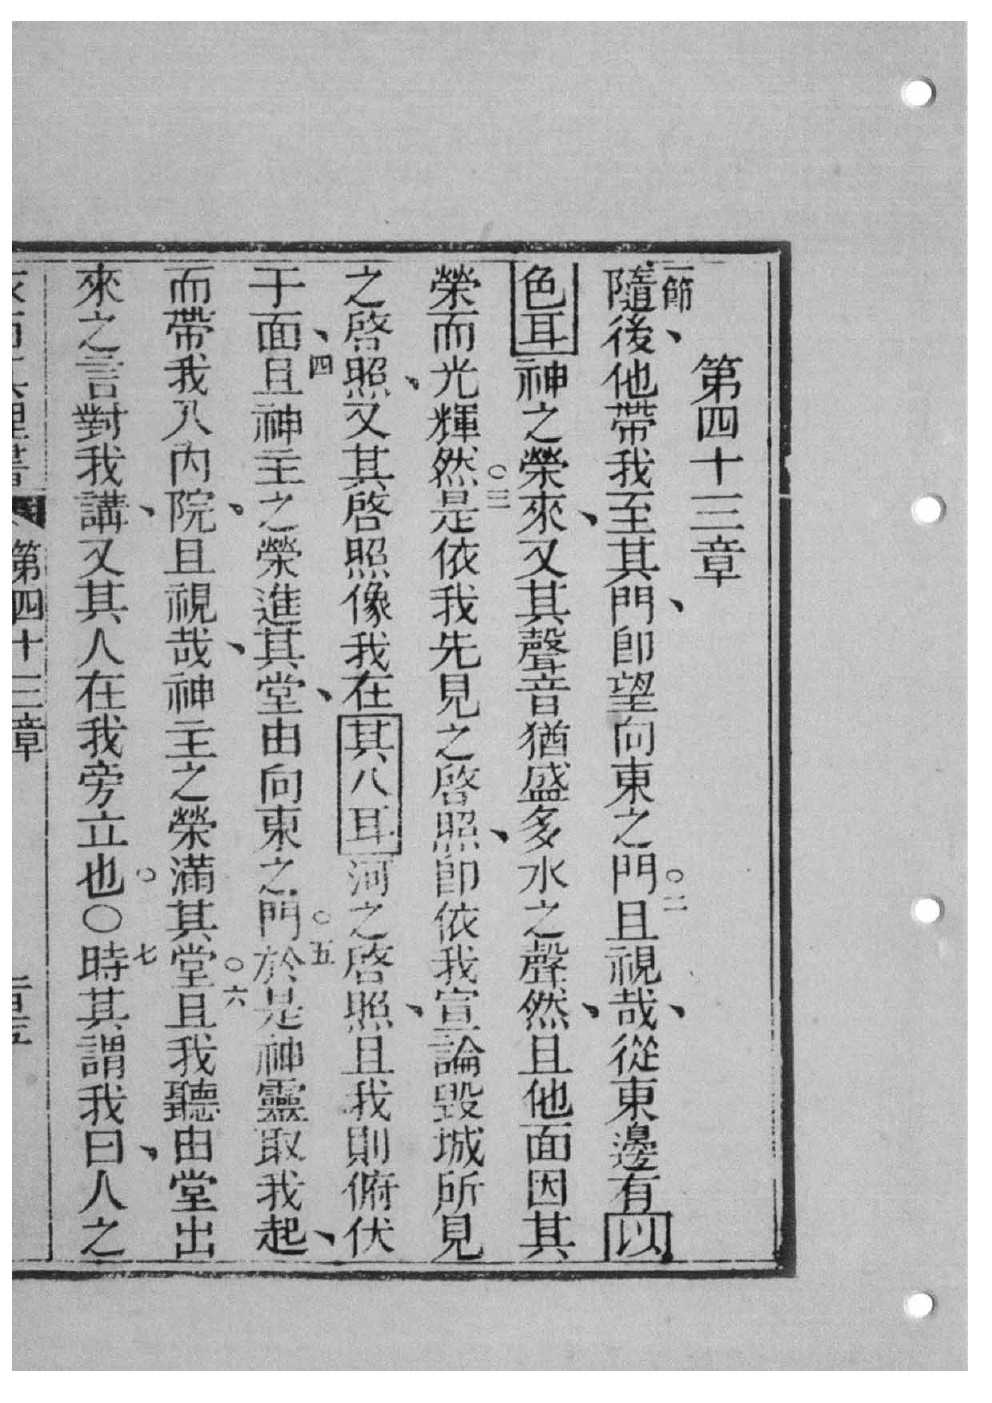 第四十三章
一節隨後他帶我至其門、卽望向東之門○二且視哉、從東邊有以
色耳神之榮來、又其聲音猶盛多水之聲、然且他面因其
榮而光輝○三然是依我先見之啓照、卽依我宣論毀城所見
之啓照、又其啓照像我在其八耳河之啓照、且我則俯伏
于面、四且神主之榮進其堂、由向東之門○五於是神靈取我起、
而帶我入內院、且視哉、神主之榮滿其堂○六且我聽由堂出
來之言對我講、又其人在我旁立也○○七時其謂我曰、人之
第四十三章